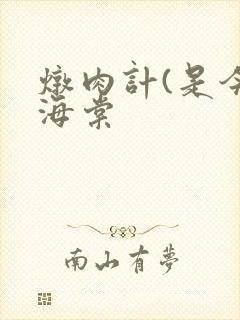 燉肉計(是令
海棠
南山有夢